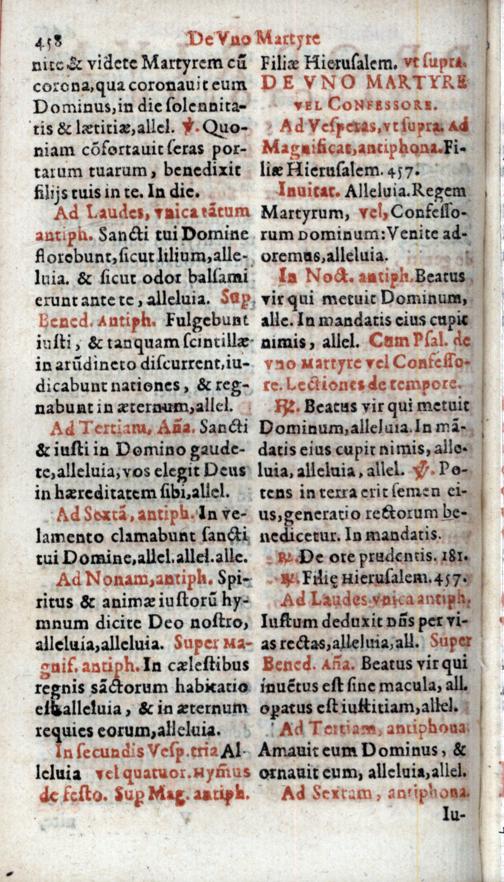 458
De Vno Martyre
nite & videte Martyrem cũ
corona, qua coronauit eum
Dominus, in die solennita-
tis & lætitiæ, allel. ℣. Quo-
niam cõfortauit seras por-
tarum tuarum, benedixit
filijs tuis in te. In die.
Ad Laudes, vnica tãtum
antiph. Sancti tui Domine
florebunt, sicut lilium, alle-
luia. & sicut odor balsami
erunt ante te, alleluia. Sup
Bened. Antiph. Fulgebunt
iusti, & tanquam scintillæ
in arũdineto discurrent, iu-
dicabunt nationes, & reg-
nabunt in æternum, allel.
Ad Tertiam, Aña. Sancti
& iusti in Domino gaude-
te, alleluia, vos elegit Deus
in hæreditatem sibi, allel.
Ad Sextã, antiph. In ve-
lamento clamabunt sancti
tui Domine, allel. allel. alle.
Ad Nonam, antiph. Spi-
ritus & animæ iustorũ hy-
mnum dicite Deo nostro,
alleluia, alleluia. Super Ma-
gnif. antiph. In cælestibus
regnis sãctorum habitatio
est alleluia, & in æternum
requies eorum, alleluia.
In secundis Vesp. tria Al-
leluia vel quatuor. Hymũs
de festo. Sup Mag. antiph.
Filiæ Hierusalem. vt supra.
DE VNO MARTYRE
VEL CONFESSORE.
Ad Vesperas, vt supra. Ad
Magnificat, antiphona. Fi-
liæ Hierusalem. 457.
Inuitat. Alleluia. Regem
Martyrum, vel, Confesso-
rum Dominum: Venite ad-
oremus, alleluia.
In Noct. antiph. Beatus
vir qui metuit Dominum,
alle. In mandatis eius cupit
nimis, allel. Cum Psal. de
vno Martyre vel Confesso-
re. Lectiones de tempore.
℟. Beatus vir qui metuit
Dominum, alleluia. In mã-
datis eius cupit nimis, alle-
luia, alleluia, allel. ℣. Po-
tens in terra erit semen ei-
us, generatio rectorum be-
nedicetur. In mandatis.
℟. De ore prudentis. 181.
℟. Filię Hierusalem. 457.
Ad Laudes vnica antiph.
Iustum deduxit dñs per vi-
as rectas, alleluia, all. Super
Bened. Aña. Beatus vir qui
inuẽtus est sine macula, all.
opatus est iustitiam, allel.
Ad Tertiam, antiphona.
Amauit eum Dominus, &
ornauit eum, alleluia, allel.
Ad Sextam, antiphona.
Iu-